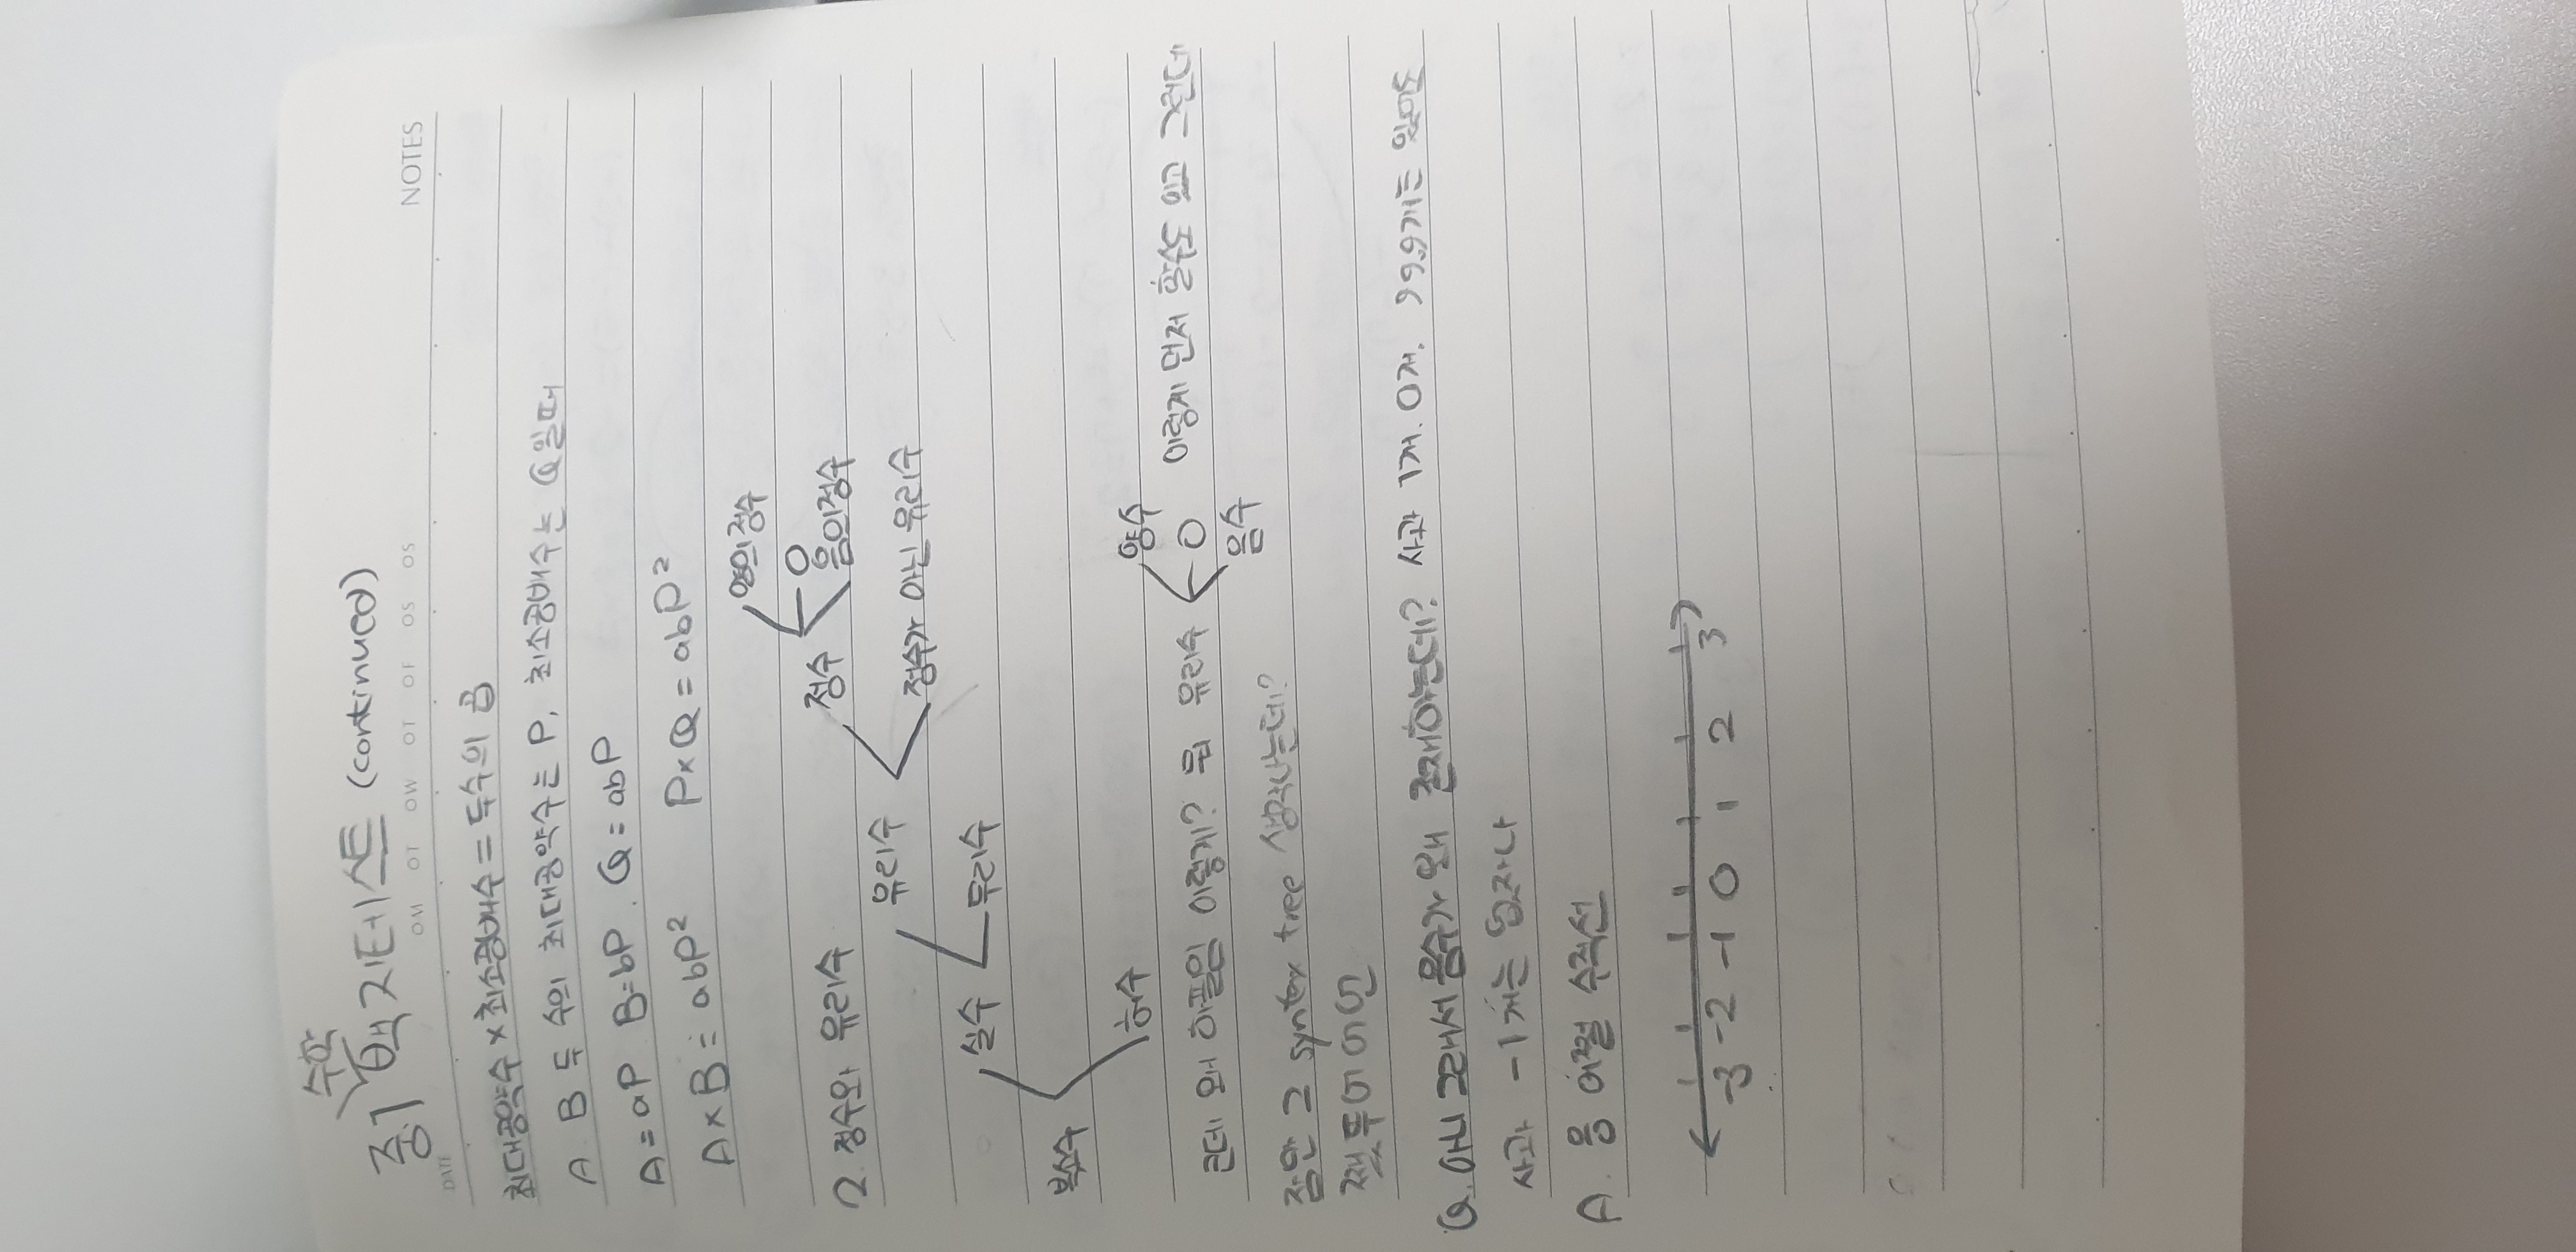 중1 수학 백지테스트 (continued)
DATE
OM OT OW OT OF OS OS
NOTES
최대공약수 × 최소공배수 = 두수의 곱
A B 두 수의 최대공약수는 P, 최소공배수는 Q일때
A=aP B=bP Q=abP
A×B=abP² P×Q=abP²
2. 정수와 유리수
양의정수
0
음의정수
정수
정수가 아닌 유리수
유리수
무리수
실수
허수
복소수
양수
0
음수
근데 왜 하필임 이렇게? 뭐 유리수 이렇게 먼저 할수도 있고 그런데
잠만 그 syntax tree 생각나는데?
Q. 아니 그래서 음수가 왜 존재하는데? 사과 1개. 0개. 999개는 있어도
사과 -1개는 없자나
A. 응 어쩔 수직선
-3 -2 -1 0 1 2 3